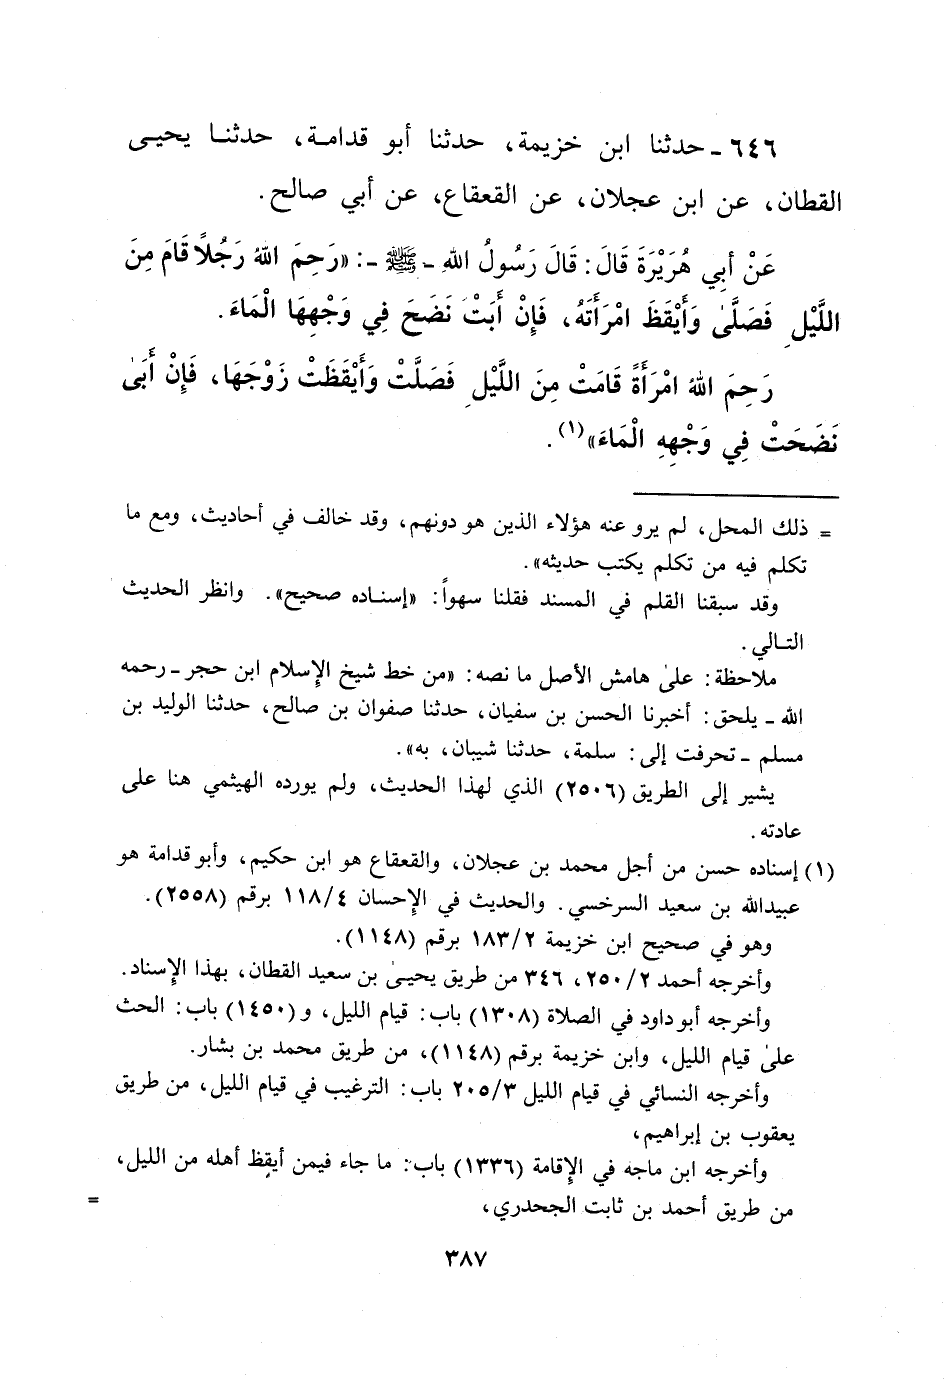 ٦٤٦ ـ حدثنا ابن خزيمة، حدثنا أبو قدامـة، حدثنـا يحيـى
القطان، عن ابن عجلان، عن القعقاع، عن أبي صالح.
عَنْ أبي هُرَيْرَةَ قَالَ: قَالَ رَسُولُ اللهِ ـ ﷺ ـ: «رَحِمَ اللهُ رَجُلاً قَامَ مِنَ
اللَّيْلِ فَصَلَّىٰ وَأَيْقَظَ امْرَأَتَهُ، فَإِنْ أَبَتْ نَضَحَ فِي وَجْهِهَا الْمَاءَ.
رَحِمَ اللهُ امْرَأَةً قَامَتْ مِنَ اللَّيْلِ فَصَلَّتْ وَأَيْقَظَتْ زَوْجَهَا، فَإِنْ أَبَىٰ
نَضَحَتْ فِي وَجْهِهِ الْمَاءَ»(١).
= ذلك المحل، لم يرو عنه هؤلاء الذين هو دونهم، وقد خالف في أحاديث، ومع ما
تكلم فيه من تكلم يكتب حديثه».
وقد سبقنا القلم في المسند فقلنا سهواً: «إسنـاده صحيح». وانظر الحديث
التـالي.
ملاحظة: علىٰ هامش الأصل ما نصه: «من خط شيخ الإسلام ابن حجر ـ رحمه
الله ـ يلحق: أخبرنا الحسن بن سفيان، حدثنا صفوان بن صالح، حدثنا الوليد بن
مسلم ـ تحرفت إلى: سلمة، حدثنا شيبان، به».
يشير إلى الطريق (٢٥٠٦) الذي لهذا الحديث، ولم يورده الهيثمي هنا على
عادته.
(١) إسناده حسن من أجل محمد بن عجلان، والقعقاع هو ابن حكيم، وأبو قدامة هو
عبيدالله بن سعيد السرخسي. والحديث في الإحسان ١١٨/٤ برقم (٢٥٥٨).
وهو في صحيح ابن خزيمة ١٨٣/٢ برقم (١١٤٨).
وأخرجه أحمد ٢٥٠/٢، ٣٤٦ من طريق يحيىٰ بن سعيد القطان، بهذا الإسناد.
وأخرجه أبو داود في الصلاة (١٣٠٨) باب: قيام الليل، و (١٤٥٠) باب: الحث
علىٰ قيام الليل، وابن خزيمة برقم (١١٤٨)، من طريق محمد بن بشار.
وأخرجه النسائي في قيام الليل ٢٠٥/٣ باب: الترغيب في قيام الليل، من طريق
يعقوب بن إبراهيم،
وأخرجه ابن ماجه في الإقامة (١٣٣٦) باب: ما جاء فيمن أيقظ أهله من الليل،
من طريق أحمد بن ثابت الجحدري، =
٣٨٧